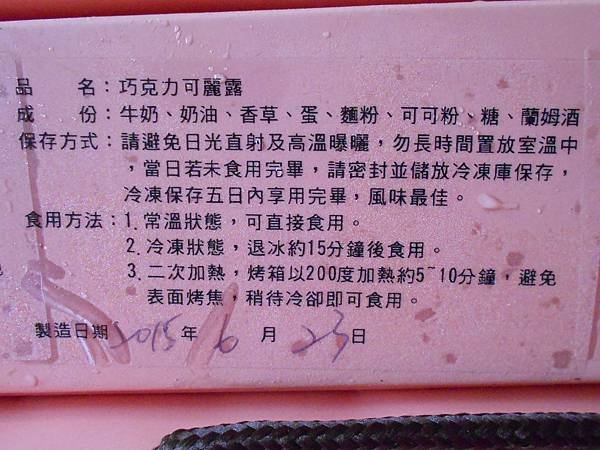 品　　名：巧克力可麗露
成　　份：牛奶、奶油、香草、蛋、麵粉、可可粉、糖、蘭姆酒
保存方式：請避免日光直射及高溫曝曬，勿長時間置放室溫中
，當日若未食用完畢，請密封並儲放冷凍庫保存，
冷凍保存五日內享用完畢，風味最佳。
食用方法：1. 常溫狀態，可直接食用。
2. 冷凍狀態，退冰約15分鐘後食用。
3. 二次加熱，烤箱以200度加熱約5~10分鐘，避免
表面烤焦，稍待冷卻即可食用。
製造日期 2015 年 6 月 23 日